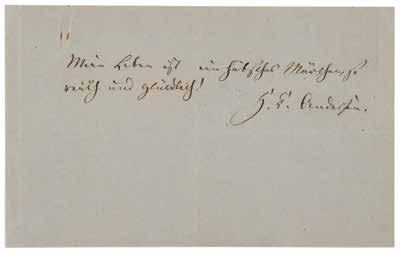 Mein Leben ist ein hübsches Märchen, so
reich und glücklich!
H. C. Andersen.